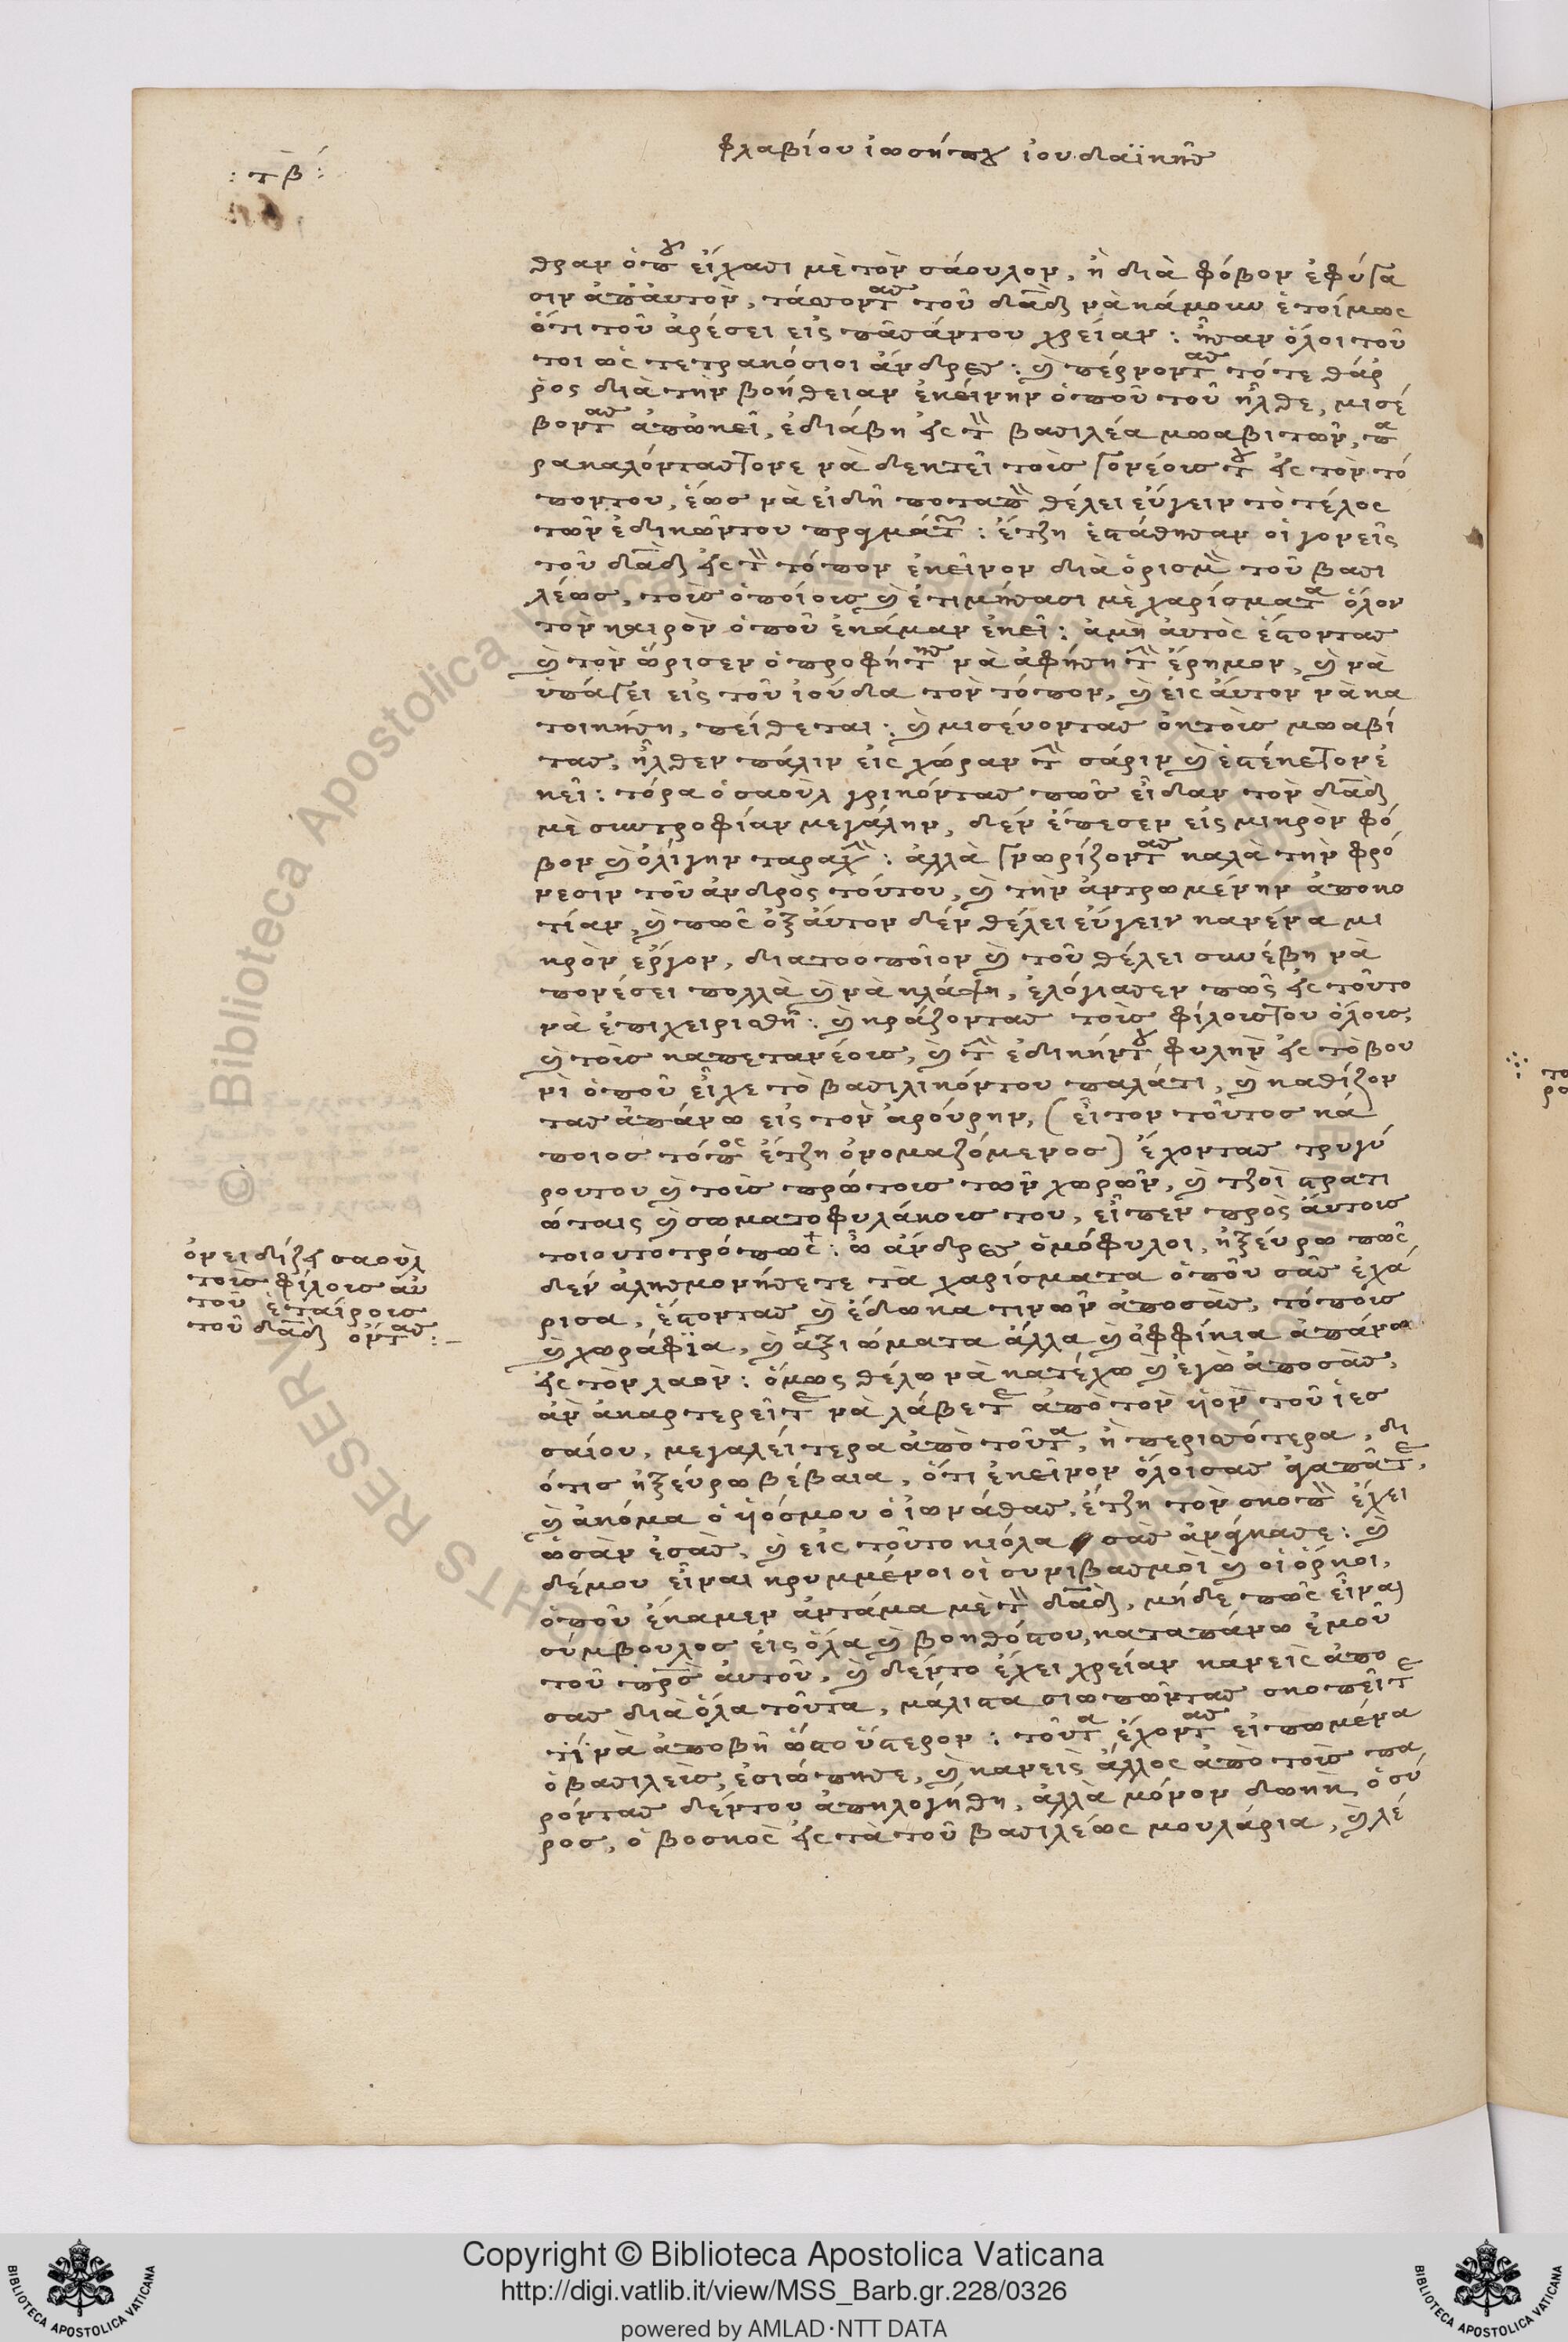 φλαβίου ἰωσήπου ἰουδαϊκῆς
: τβ :
θραν ὁποῦ εἴχασι μὲ τὸν σάουλον, ἢ διὰ φόβον ἐφύγα
σιν ἀπ' αὐτὸν, τάσοντας τοῦ δαδ νὰ κάμουν ἑτοίμως
ὅτι τοῦ ἀρέσει εἰς πᾶσάντου χρείαν : ἦσαν ὅλοι τοῦ
τοι ὡς τετρακόσιοι ἄνδρες : καὶ πέρνοντας τότε θάρ
ρος διὰ τὴν βοήθειαν ἐκείνην ὁποῦ τοῦ ἦλθε, μισέ
βοντας ἀπ' ἐκεῖ, ἐδιάβη εἰς τὸν βασιλέα μωαβιτῶν, πα
ρακαλόντας τονε νὰ δεκτεῖ τοὺς γονέους του εἰς τὸν τό
ποντου, ἕως νὰ εἰδῆ ποταπὸν θέλει εὔγειν τὸ τέλος
τῶν ἐδικῶντου πραγμάτων : ἔτζη ἐστάθησαν οἱ γονεῖς
τοῦ δαδ εἰς τὸν τόπον ἐκεῖνον διὰ ὁρισμὸν τοῦ βασι
λέως, τοὺς ὁποίους καὶ ἐτιμήσασι μὲ χαρίσματα ὅλον
τὸν καιρὸν ὁποῦ ἐκάμαν ἐκεῖ : ἀμὴ αὐτὸς ἔστοντας
καὶ τὸν ὥρισεν ὁ προφήτης νὰ ἀφήση τὴν ἔρημον, καὶ νὰ
ὑπάγει εἰς τοῦ ἰούδα τὸν τόπον, καὶ εἰς αὖτον νὰ κα
τοικήση, πείθεται : καὶ μισεύοντας ἐκ τοὺς μωαβί
τας, ἦλθεν πάλιν εἰς χώραν τὴν σάριν καὶ ἐστέκετον ἐ
κεῖ : τόρα ὁ σαοὺλ γρικόντας πῶς εἶδαν τὸν δαδ
μὲ συντροφίαν μεγάλην, δὲν ἔπεσεν εἰς μικρὸν φό
βον καὶ ὀλίγην ταραχὴν : ἀλλὰ γνωρίζοντας καλὰ τὴν φρό
νεσιν τοῦ ἀνδρὸς τούτου, καὶ τὴν ἀντρωμένην ἀποκο
τίαν, καὶ πῶς ὀξ αὖτον δὲν θέλει εὔγειν κανένα μι
κρὸν ἔργον, διατοοποῖον καὶ τοῦ θέλει συνέβη νὰ
πονέσει πολλὰ καὶ νὰ κλάψη, ἐλόγιασεν πῶς εἰς τοῦτο
νὰ ἐπιχειρισθῆ : καὶ κράζοντας τοὺς φίλους του ὅλους,
καὶ τοὺς καπετανέους, καὶ τὴν ἐδικήντου φυλὴν εἰς τὸ βου
νὶ ὁποῦ εἶχε τὸ βασιλικόντου παλάτι, καὶ καθίζον
τας ἀπάνω εἰς τὸν ἀρούρην, (εἶτον τοῦτος κά
ποιος τόπος ἔτζη ὀνομαζόμενος) ἔχοντας τρυγύ
ρουτου καὶ τοὺς πρώτους τῶν χωρῶν, καὶ τζοὶ στρατι
ώταις καὶ σωματοφυλάκους του, εἶπεν πρὸς αὐτους
τοιουτοτρόπως : ὦ ἄνδρες ὁμόφυλοι, ἠξεύρω πῶς
δὲν ἀλησμονήσετε τὰ χαρίσματα ὁποῦ σᾶς ἐχά
ρισα, ἔστοντας καὶ ἔδωκα τινῶν ἀποσὰς, τόπους
καὶ χωράφϊα, καὶ ἀξιώματα ἄλλα καὶ ὀφφίκια ἀπάνω
εἰς τὸν λαὸν : ὅμως θέλω νὰ κατέχω καὶ ἐγὼ ἀποσὰς,
ἂν ἀκαρτερεῖτε νὰ λάβετε ἀπὸ τὸν ὑιὸν τοῦ ἰεσ
σαίου, μεγαλείτερα ἀπὸ τοῦτα, ἢ περισότερα, δι
ότις ἠξεύρω βέβαια, ὅτι ἐκεῖνον ὅλοισας ἀγαπᾶτε,
καὶ ἀκόμα ὁ ὑιόσμου ὁ ἰωνάθας, ἔτζη τὸν σκοπὸν ἔχει
ὡσὰν ἐσὰς, καὶ εἰς τοῦτο κιόλα σᾶς ἀνάγκασε : καὶ
δέμου εἶναι κρυμμένοι οἱ συνιβασμοὶ καὶ οἱ ὅρκοι,
ὁποῦ ἐκαμεν ἀντάμα μὲ τὸν δαδ, μήδε πῶς εἶναι
σύμβουλος εἰς ὅλα καὶ βοηθόςτου, καταπάνω ἐμοῦ
τοῦ πρς αὐτοῦ, καὶ δέντο ἔχει χρείαν κανεὶς ἀπο
σας διὰ ὅλα τοῦτα, μάλιστα σιωπῶντας σκοπεῖτε
τί νὰ ἀποβῆ ὥστο ὕστερον : τοῦτα ἔχοντας εἰπωμένα
ὁ βασιλεὺς, ἐσιώπησε, καὶ κανεὶς ἄλλος ἀπὸ τοὺς πα
ρόντας δέντου ἀπηλογήθη, ἀλλὰ μόνον δωὴκ ὁ σύ
ρος, ὁ βοσκὸς εἰς τὰ τοῦ βασιλέως μουλάρια, καὶ λέ
ὀνειδίζει σαοὺλ
τοὺς φίλους αὐ
τοῦ ἑταίρους
τοῦ δαδ ὄντας :-
Copyright © Biblioteca Apostolica Vaticana
http://digi.vatlib.it/view/MSS_Barb.gr.228/0326
powered by AMLAD·NTT DATA